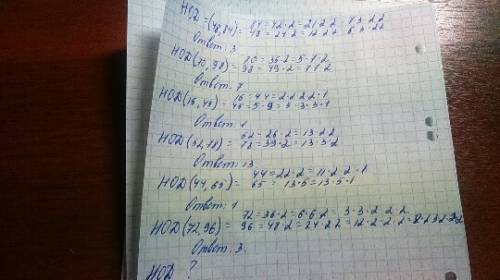 НОД =(48,84) = 84=42·2=21·2·2
48=24·2=12·2·2
Ответ: 3
НОД (70,98) = 70=35·2=5·7·2
98=49·2=7·7·2
Ответ: 7
НОД (16,45) = 16=44=2·2·2·2·1
45=5·9=5·3·3·1
Ответ: 1
НОД (52,78) = 52=26·2=13·2·2
78=39·2=13·3·2
Ответ: 13
НОД (44,65) = 44=22·2=11·2·2·1
65= 13·5=13·5·1
Ответ: 1
НОД (72,96) = 72=36·2=6·6·2= 3·3·2·2·2
96=48·2=24·2·2=12·2·2·2=
Ответ: 3.
НОД ?